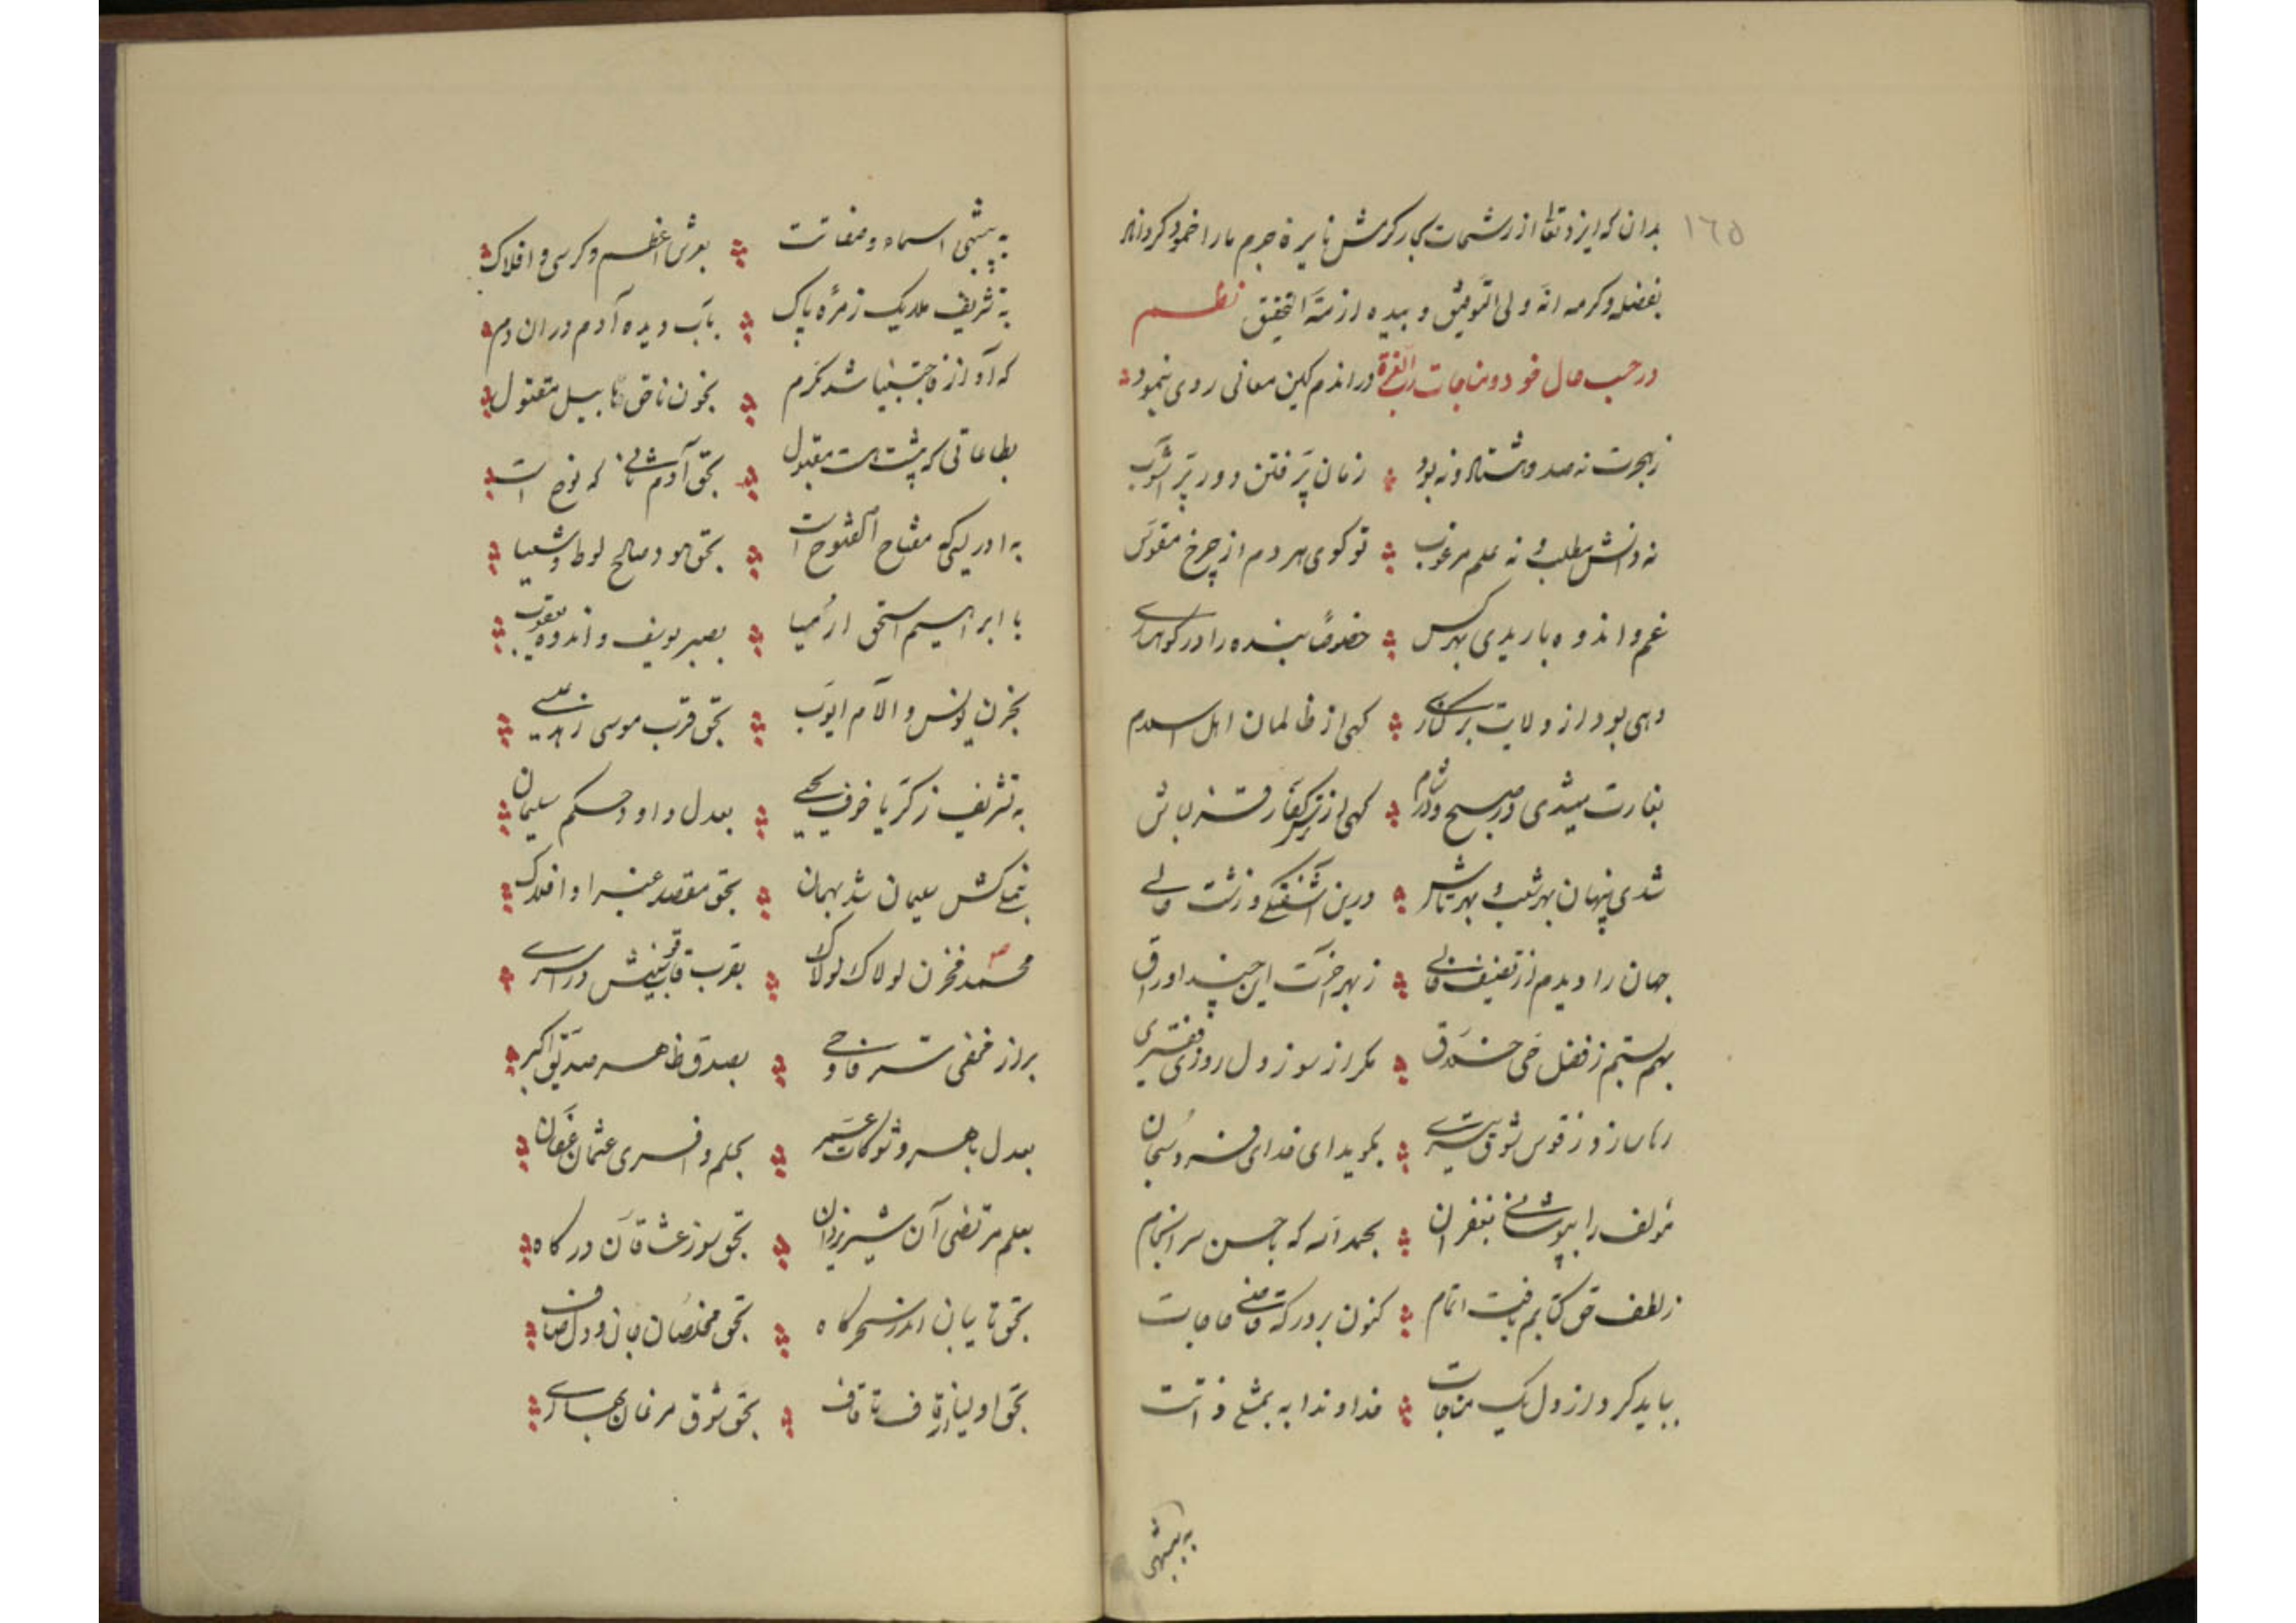 ١٦٥
بدان که ایزد تعالی از رشحات بحار کرمش نایرهٔ جرم ما را خمود کرداند
بفضله وکرمه انّه ولی التوفیق و بیده ازمّة التحقیق نظم
در حسب حال خود و مناجات ربّ العزّة در اندم کین معانی روی بنمود
ز هجرت نه صد و هشتاد و نه بود زمان پر فتن دور پر آشوب
نه دانش مطلب و نه علم مرغوب تو کوی هر دم از چرخ مقوّس
غم و اندوه باریدی بهر کس خصوصًا بنده را در کوهساری
دهی بود از ولایت برکناری کهی از ظالمان اهل اسلام
بغارت میشدی در صبح و در شام کهی از ترس کفار قزلباش
شدی پنهان بهر شب و بهر تاش درین آشفتکی و زشت حالی
جهان را دیدم از تصنیف خالی ز بهر آخرت این چند اوراق
بهم بستم ز فضل حی خلّاق مکر از سوز دل روزی فقیری
رها سازد ز قوس شوق تیری بکوید ای خدای فرد سبحان
مؤلف را بپوشانی بغفران بحمد الله که با حسن سرانجام
ز لطف حق کتابم یافت اتمام کنون بر درکه قاضی حاجات
بباید کرد از دل یک مناجات خداوندا به بمثلی ذاتت
به بیمثلی
به بیشبهی اسماء و صفاتت بعرش اعظم و کرسی و افلاک
به تشریف ملایک زمرهٔ پاک بآب دیده آدم دران دم
که آواز فاجتبینا شد مکرم بخون ناحق هابیل مقتول
بطاعاتی که پیشت هست مقبول بحق آدم ثانی که نوح است
به ادریسی که مفتاح الفتوح است بحق هود و صالح لوط و شعیا
با ابراهیم اسحق ارمیا بصبر یوسف و اندوه یعقوب
بحزن یونس و الآم ایوب بحق قرب موسی زهد عیسی
به تشریف زکریا خوف یحیی بعدل داود و حکم سلیمان
محمد مخزن لولاک لولاک بقرب قاب قوسینش در اسری
براز مخفی سرّ فاوحی بصدق ظاهر صدیق اکبر
بعدل باهر و شوکات عمر بحلم وافری عثمان عفّان
بعلم مرتضی آن شیر یزدان بحق سوز عشاقان درکاه
بحق تایبان اندر سحرکاه بحق مخلصان جان و دل صاف
بحق اولیا از قاف تا قاف بحق شوق مرغان بهاری